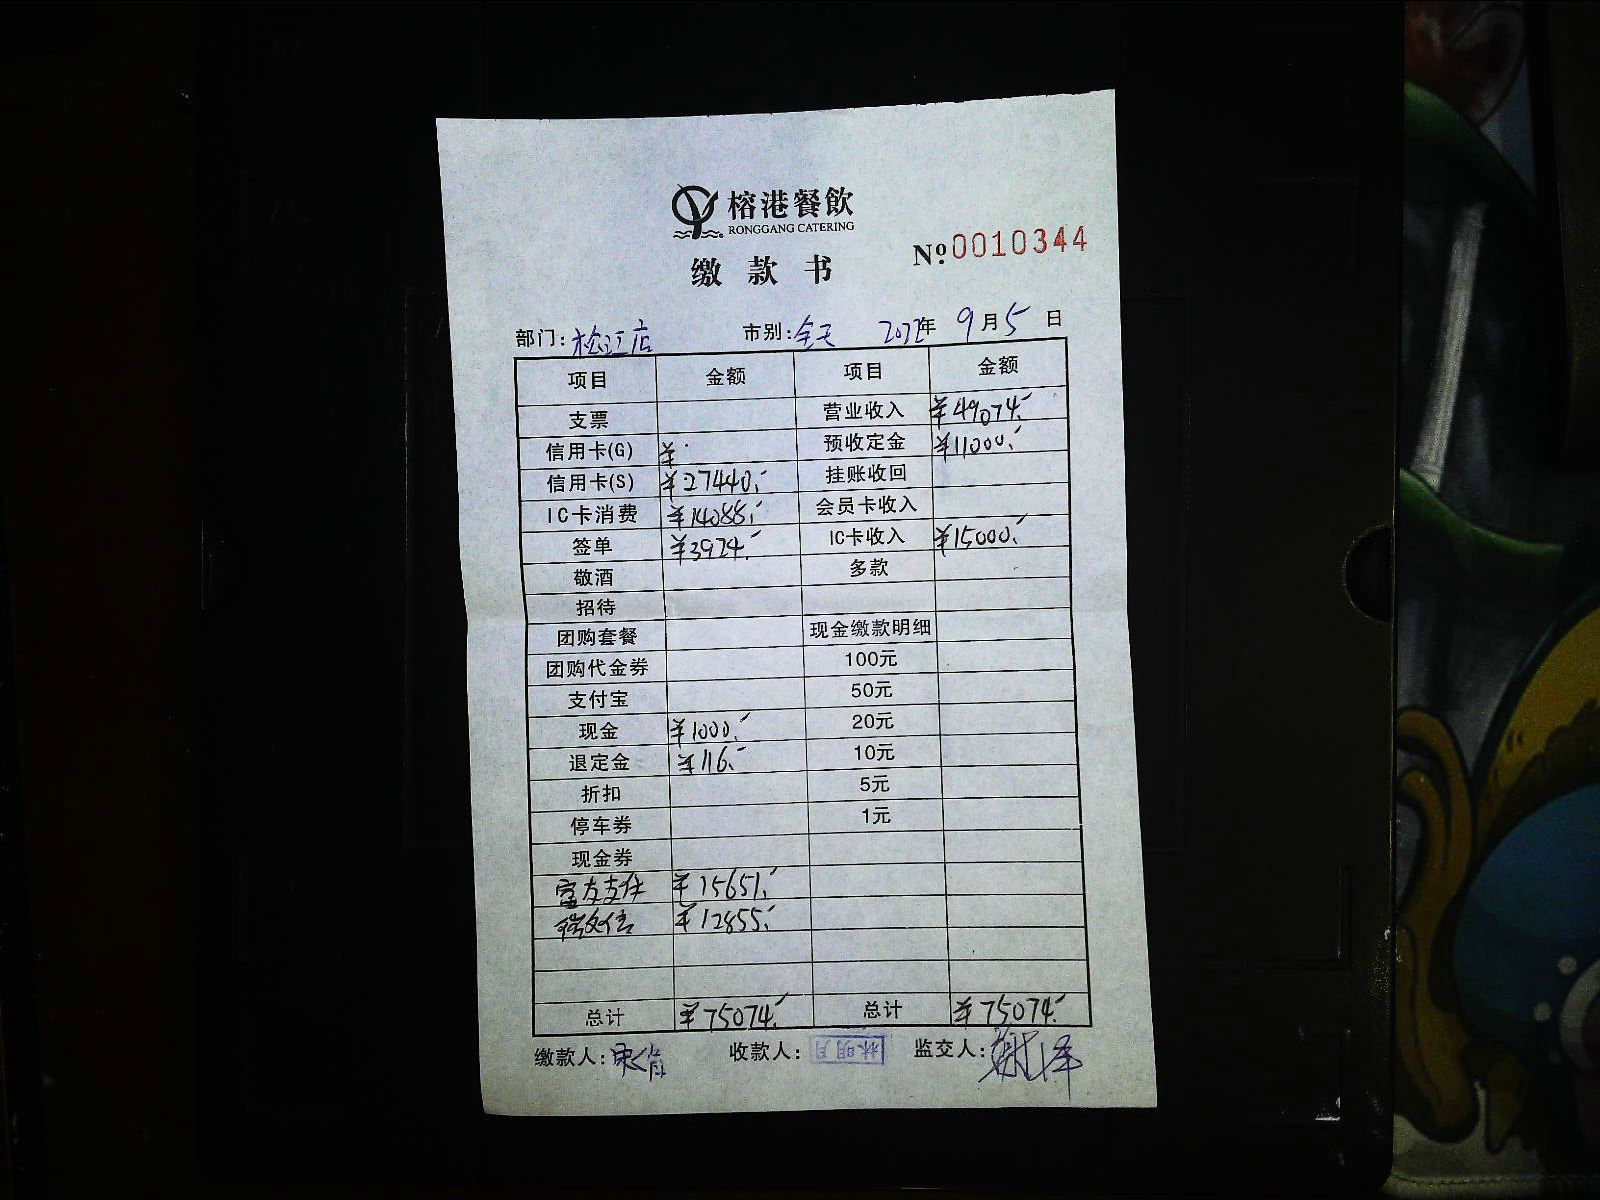 榕港餐飲
RONGGANG CATERING
№0010344
缴款书
部门:松江店 市别:全天 2022年9月5日
项目 金额 项目 金额
支票 营业收入 ¥49074.-
信用卡(G) ¥ 预收定金 ¥11000.-
信用卡(S) ¥27440.- 挂账收回
IC卡消费 ¥14088.- 会员卡收入
签单 ¥3924.- IC卡收入 ¥15000.-
敬酒 多款
招待
团购套餐 现金缴款明细
团购代金券 100元
支付宝 50元
现金 ¥1000.- 20元
退定金 ¥116.- 10元
折扣 5元
停车券 1元
现金券
富友支付 ¥15651.-
微信 ¥12855.-
总计 ¥75074.- 总计 ¥75074.-
缴款人: 收款人:林明月 监交人:谢泽